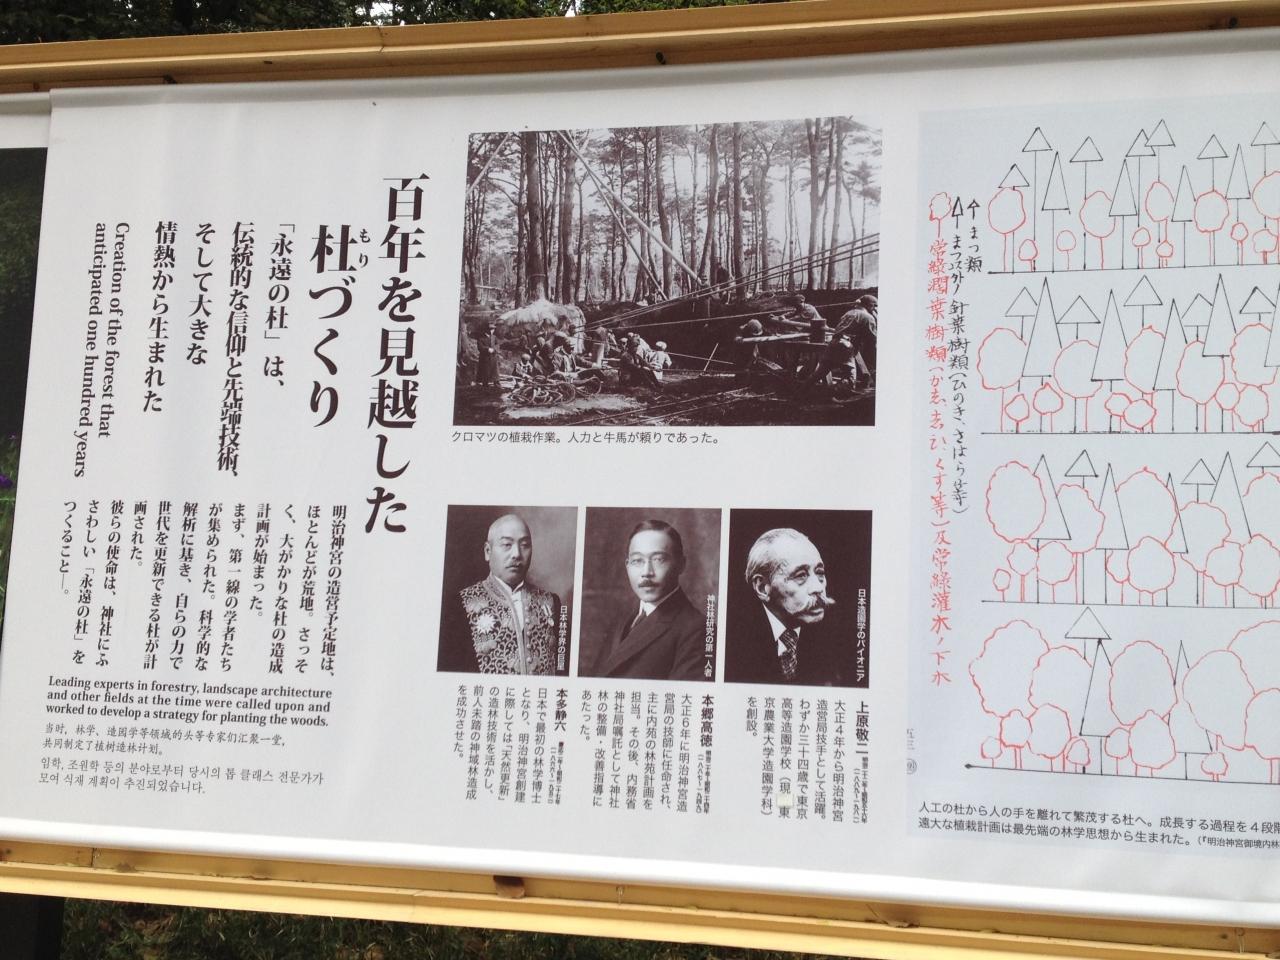 百年を見越した
杜づくり
もり
「永遠の杜」は、
伝統的な信仰と先端技術、
そして大きな
情熱から生まれた
Creation of the forest that
anticipated one hundred years
明治神宮の造営予定地は、
ほとんどが荒地。さっそ
く、大がかりな杜の造成
計画が始まった。
まず、第一線の学者たち
が集められた。科学的な
解析に基き、自らの力で
世代を更新できる杜が計
画された。
彼らの使命は、神社にふ
さわしい「永遠の杜」を
つくること―。
Leading experts in forestry, landscape architecture
and other fields at the time were called upon and
worked to develop a strategy for planting the woods.
当时，林学、造园学等领域的头等专家们汇聚一堂，
共同制定了植树造林计划。
임학, 조원학 등의 분야로부터 당시의 톱 클래스 전문가가
모여 식재 계획이 추진되었습니다.
クロマツの植栽作業。人力と牛馬が頼りであった。
日本造園学のパイオニア
上原敬二
大正4年から明治神宮
造営局技手として活躍。
わずか三十四歳で東京
高等造園学校（現 東
京農業大学造園学科）
を創設。
神社林研究の第一人者
本郷高徳
大正6年に明治神宮造
営局の技師に任命され、
主に内苑の林苑計画を
担当。その後、内務省
神社局嘱託として神社
林の整備・改善指導に
あたった。
日本林学界の巨星
本多静六
日本で最初の林学博士
となり、明治神宮創建
に際しては「天然更新」
の造林技術を活かし、
前人未踏の神域林造成
を成功させた。
まつ類
まつ以外ノ針葉樹類(ひのき、さはら等)
常緑濶葉樹類(かし、しひ、くす等)及常緑灌木ノ下木
人工の杜から人の手を離れて繁茂する杜へ。成長する過程を4段階
遠大な植栽計画は最先端の林学思想から生まれた。(『明治神宮御境内林